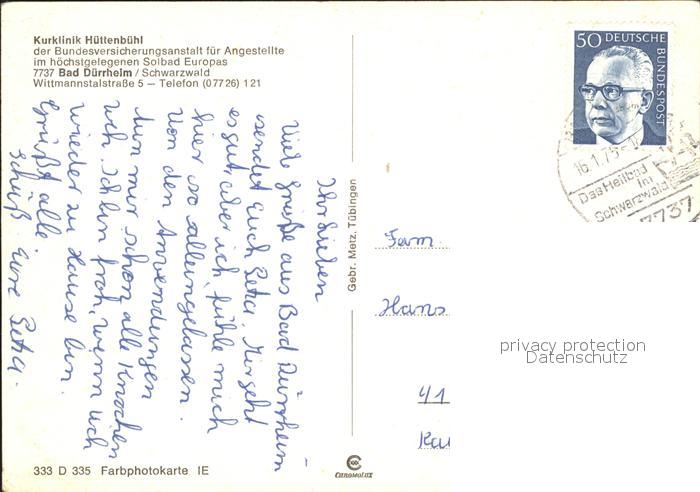 Kurklinik Hüttenbühl
der Bundesversicherungsanstalt für Angestellte
im höchstgelegenen Solbad Europas
7737 Bad Dürrheim / Schwarzwald
Wittmannstalstraße 5 – Telefon (07726) 121
Ihr Lieben
Viele Grüße aus Bad Dürrheim
sendet Euch Petra. Mir geht
es gut, aber ich fühle mich
hier so alleingelassen.
Von den Anwendungen
tun mir schon alle Knochen
weh. Ich bin froh, wenn ich
wieder zu Hause bin.
Grüßt alle.
Tschüß Eure Petra.
Gebr. Metz, Tübingen
50 DEUTSCHE BUNDESPOST
16.1.75
Das Heilbad
im
Schwarzwald
7737
Fam.
Hans
41
privacy protection
Datenschutz
333 D 335 Farbphotokarte IE